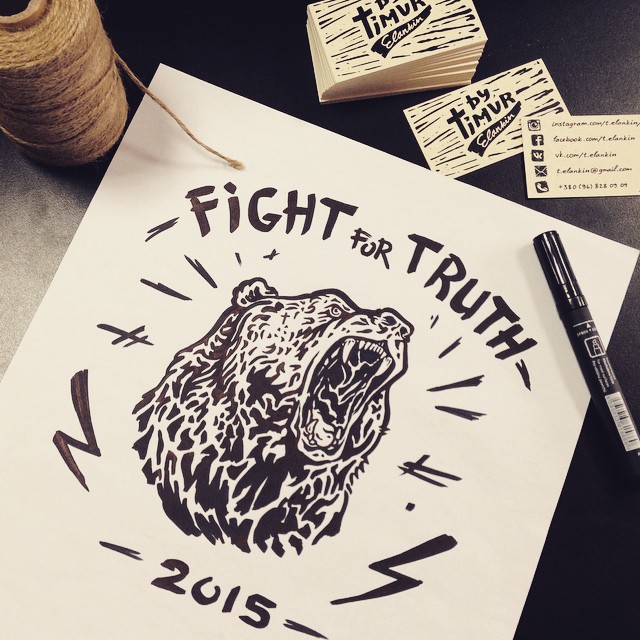 by
TiMUR
Elankin
by
TiMUR
Elankin
instagram.com/t.elankin/
facebook.com/t.elankin
vk.com/t.elankin
t.elankin@gmail.com
+380 (96) 828 09 09
FiGHT FOR TRUTH
2015